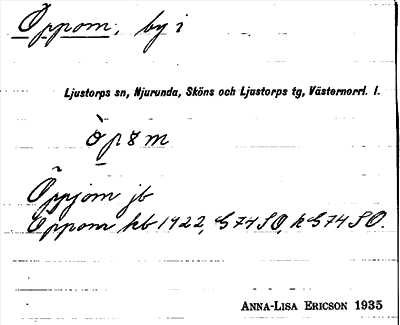 Öppom, by i
Ljustorps sn, Njurunda, Sköns och Ljustorps tg, Västernorrl. l.
òpɜm
Öppjom jb
Öppom kb 1922, G74SO, kG74SO.
ANNA-LISA ERICSON 1935